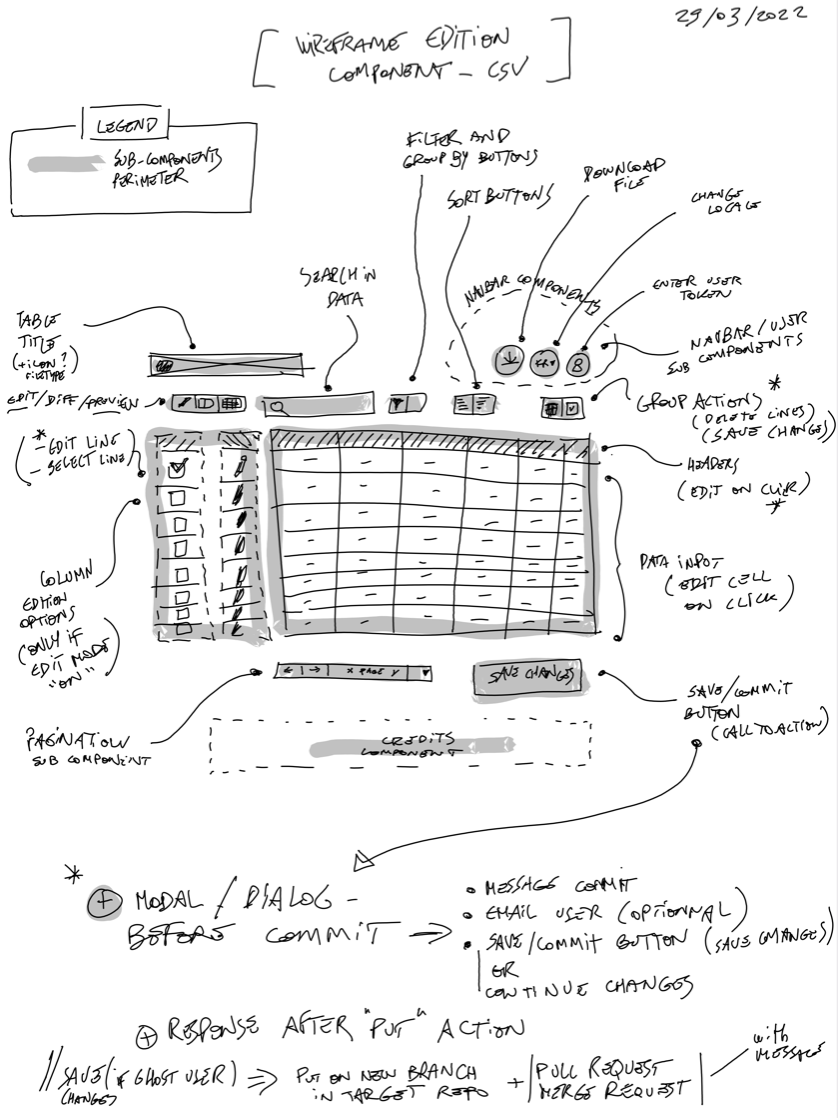 29/03/2022
WIREFRAME EDITION
COMPONENT - CSV
LEGEND
SUB-COMPONENTS
PERIMETER
FILTER AND
GROUP BY BUTTONS
SORT BUTTONS
DOWNLOAD
FILE
CHANGE
LOCALE
SEARCH IN
DATA
NAVBAR COMPONENTS
ENTER USER
TOKEN
TABLE
TITLE
(+ icon ?
FILETYPE)
NAVBAR / USER
SUB COMPONENTS
EDIT/DIFF/PREVIEW
GROUP ACTIONS *
(DELETE LINES)
(SAVE CHANGES)
*
- EDIT LINE
- SELECT LINE
HEADERS
(EDIT ON CLICK)
*
DATA INPUT
(EDIT CELL
ON CLICK)
COLUMN
EDITION
OPTIONS
(ONLY IF
EDIT MODE
"ON")
← | → | X PAGE Y
SAVE CHANGES
SAVE/COMMIT
BUTTON
(CALL TO ACTION)
PAGINATION
SUB COMPONENT
CREDITS
COMPONENT
*
+ MODAL / DIALOG -
BEFORE COMMIT →
• MESSAGE COMMIT
• EMAIL USER (OPTIONNAL)
• SAVE/COMMIT BUTTON (SAVE CHANGES)
OR
CONTINUE CHANGES
+ RESPONSE AFTER "PUT" ACTION
// SAVE (if GHOST USER) ⇒ PUT ON NEW BRANCH + | PULL REQUEST |
CHANGES IN TARGET REPO MERGE REQUEST
with
MESSAGE